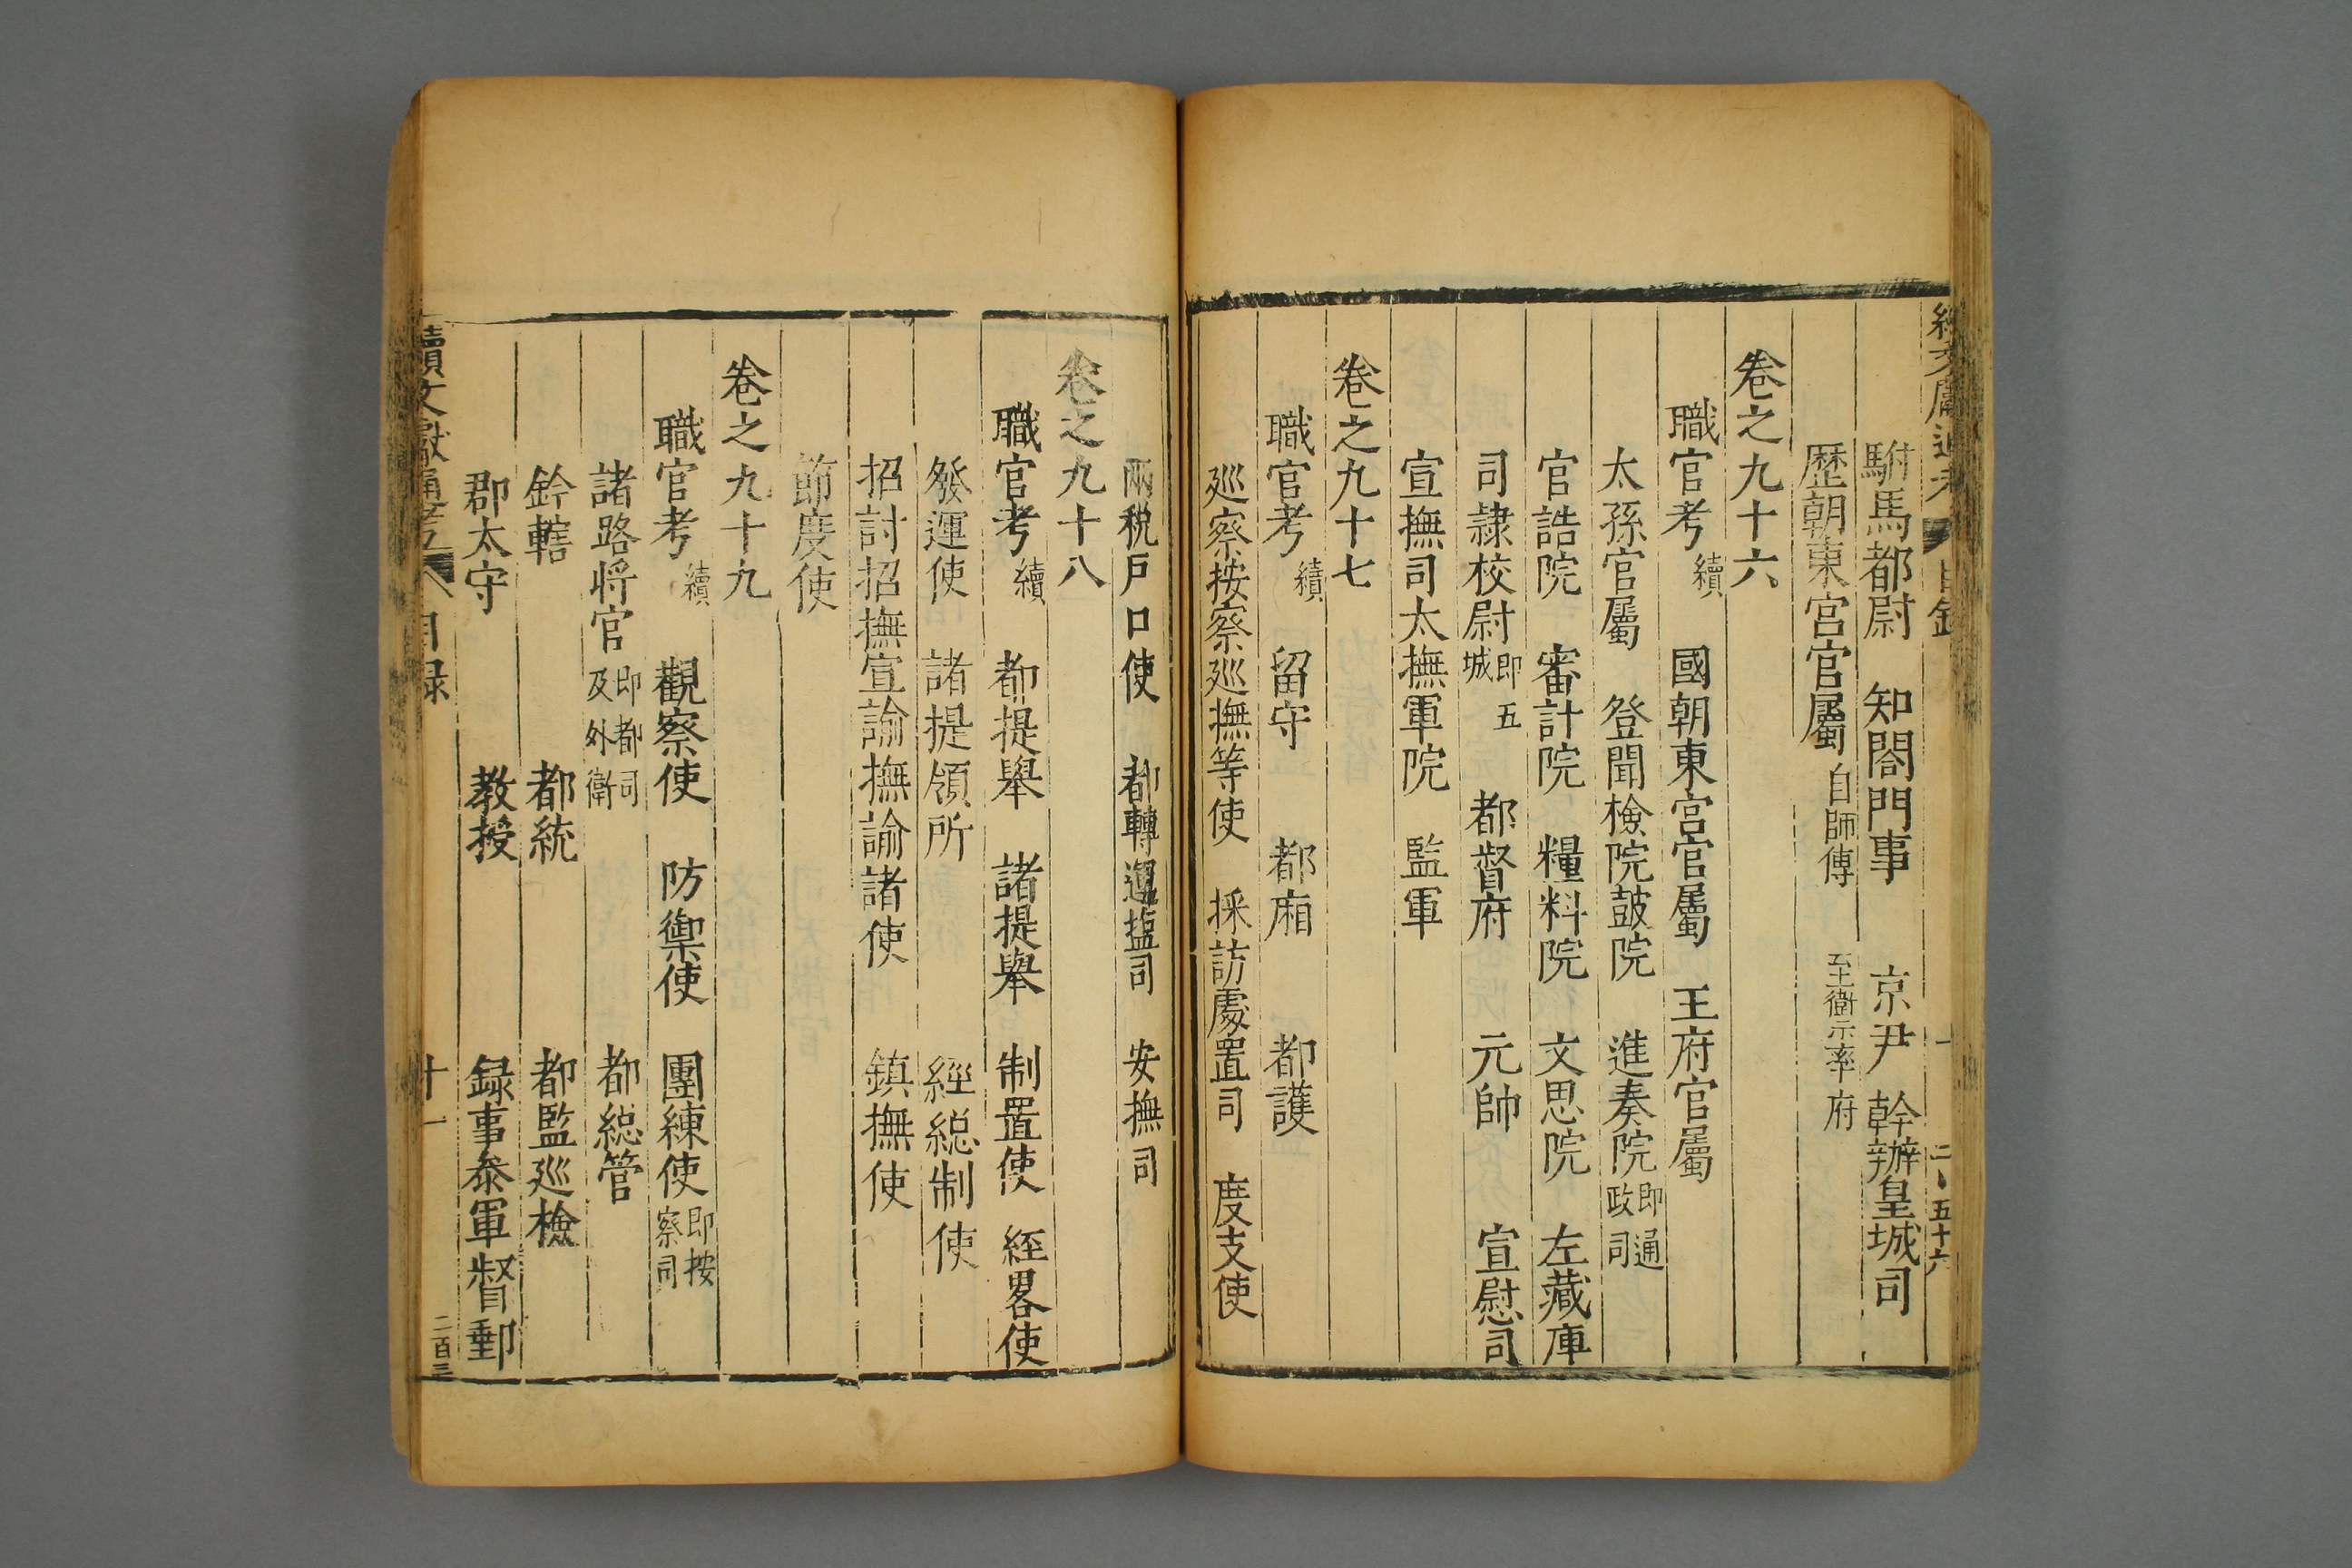 駙馬都尉　知閤門事　京尹　幹辦皇城司
歷朝東宮官屬 自師傅 至衛率府
卷之九十六
職官考 續　國朝東宮官屬　王府官屬
太孫官屬　登聞檢院鼓院　進奏院 即通政司
官誥院　審計院　糧料院　文思院　左藏庫
司隷校尉 即五城　都督府　元帥　宣慰司
宣撫司太撫軍院　監軍
卷之九十七
職官考 續　留守　都廂　都護
巡察按察巡撫等使　採訪處置司　度支使
兩稅戶口使　都轉運塩司　安撫司
卷之九十八
職官考 續　都提舉　諸提舉　制置使　經畧使
發運使　諸提領所　經総制使
招討招撫宣諭撫諭諸使　鎮撫使
節度使
卷之九十九
職官考 續　觀察使　防禦使　團練使 即按察司
諸路將官 即都司及外衛　都総管
鈐轄　都統　都監巡檢
郡太守　教授　録事叅軍督郵
續文獻通考　目録　十一　二百三